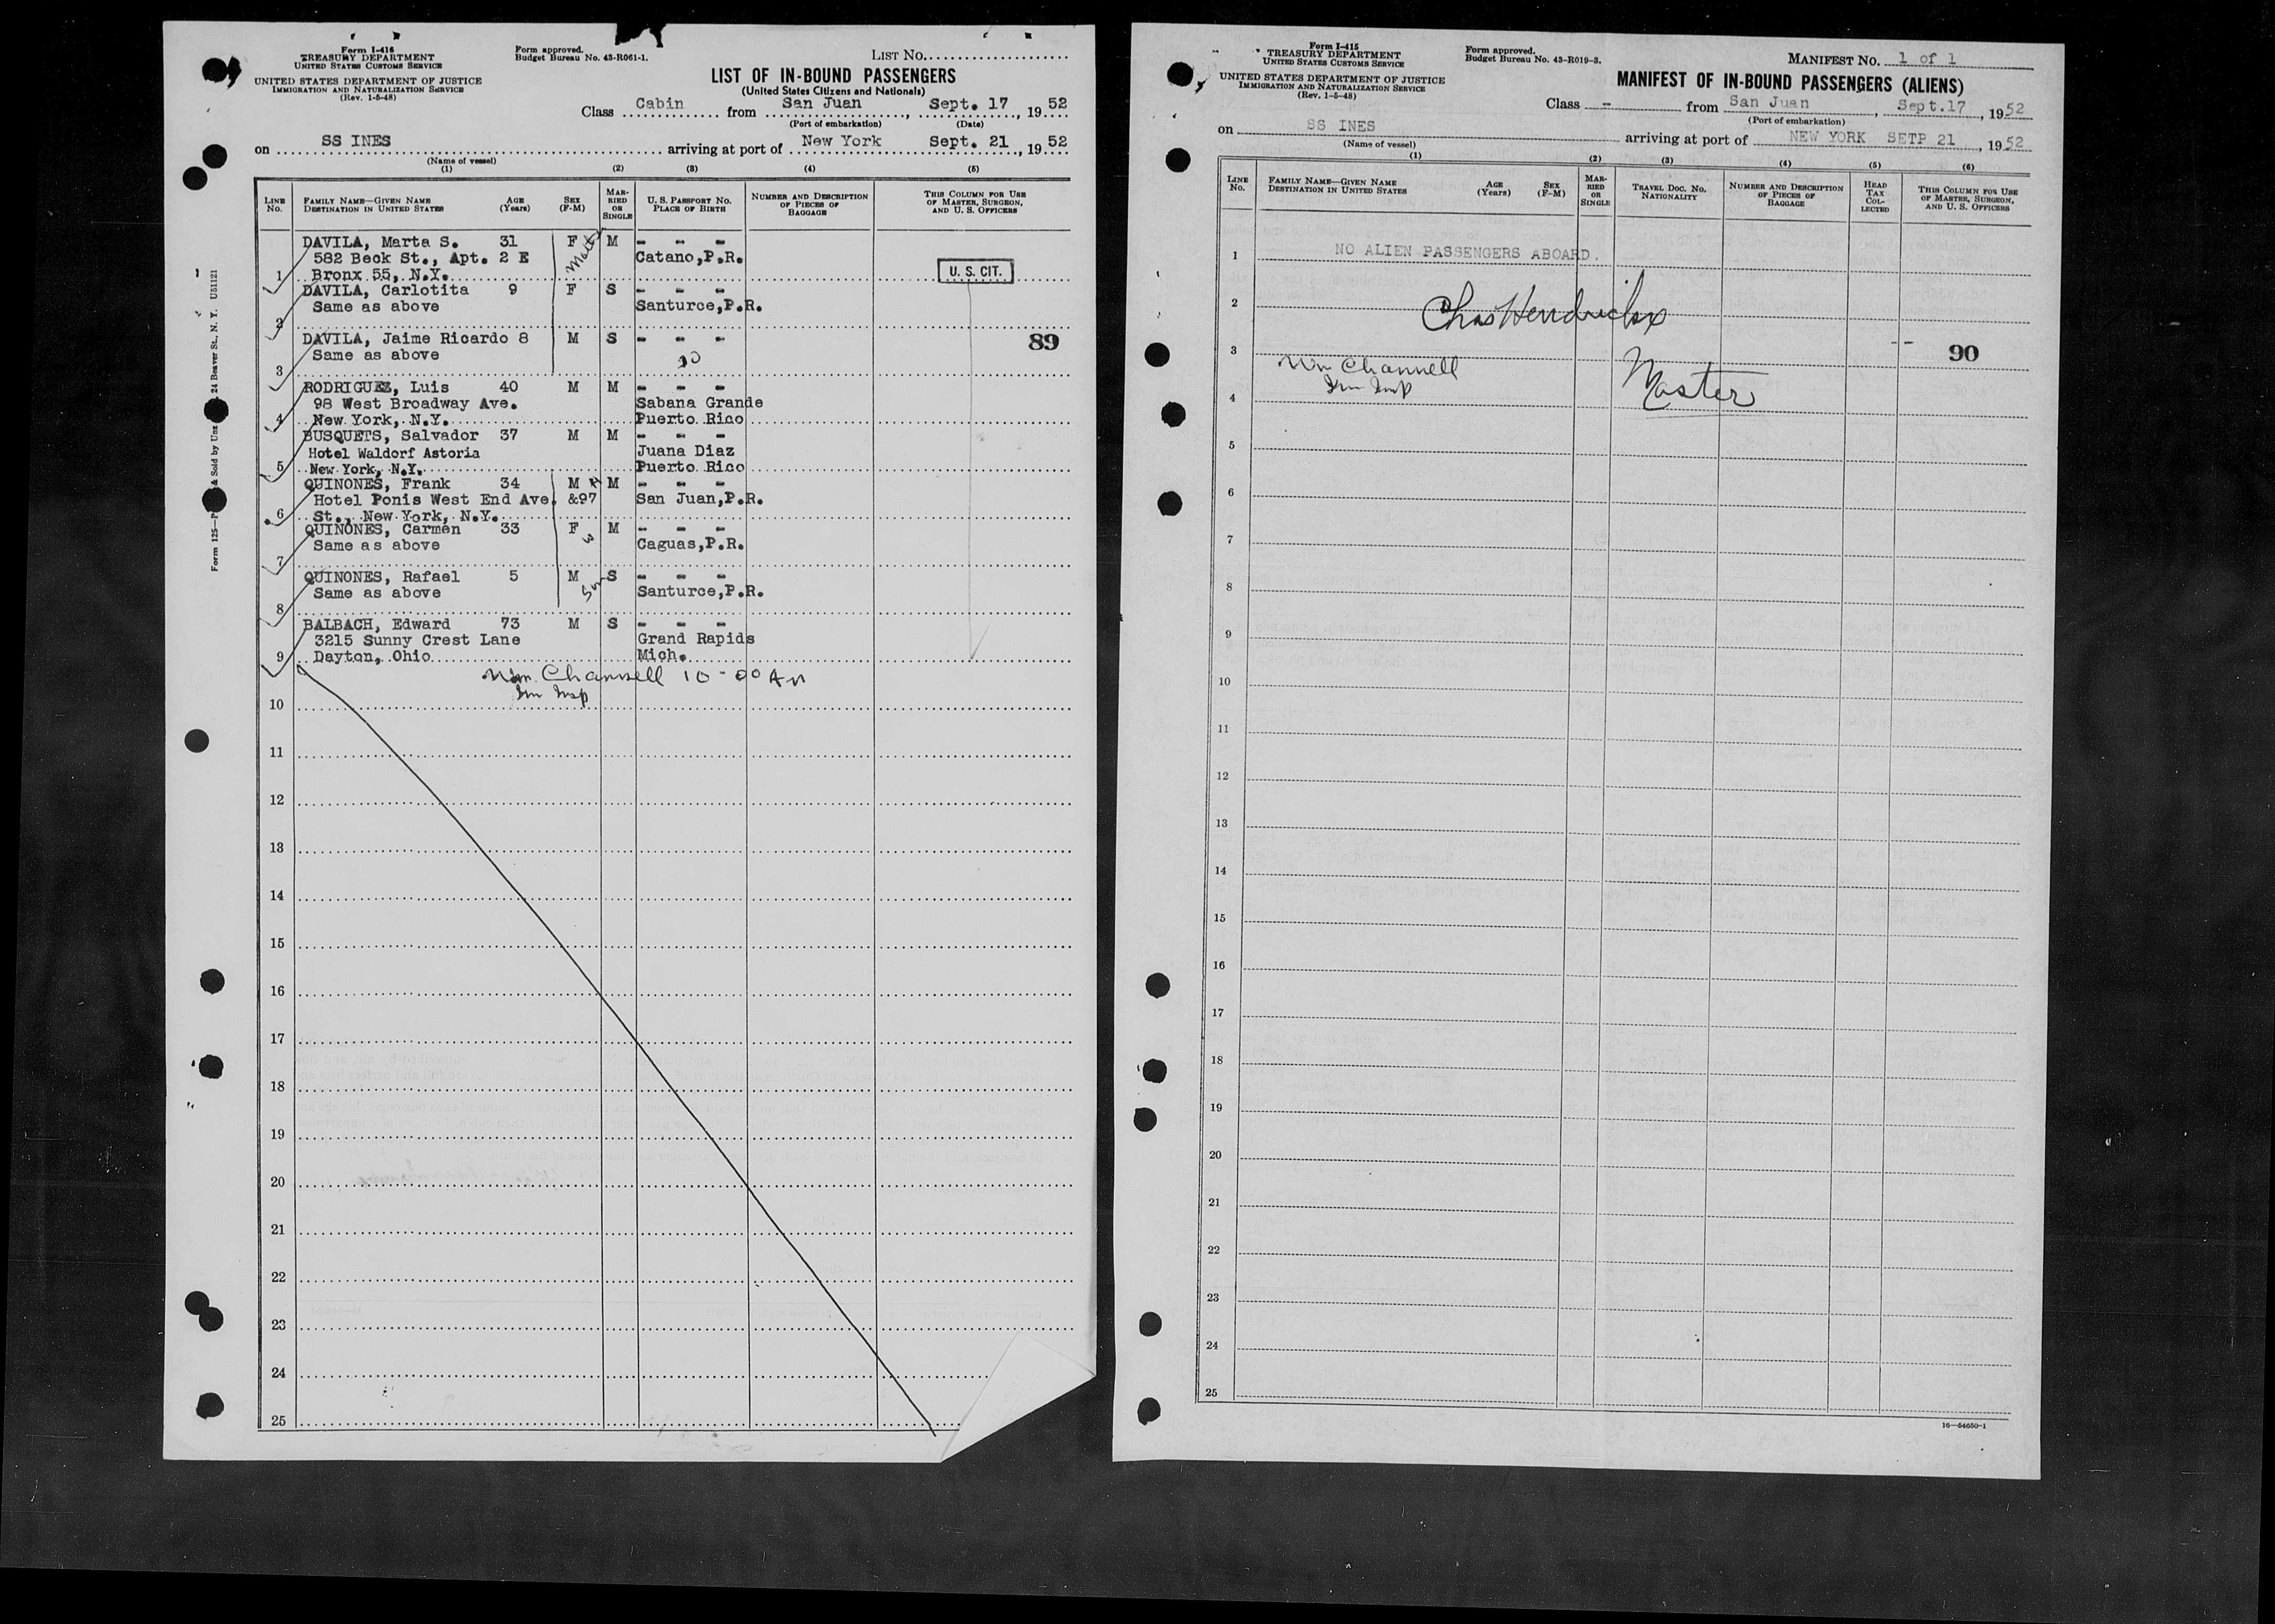 Form I-416
TREASURY DEPARTMENT
UNITED STATES CUSTOMS SERVICE
UNITED STATES DEPARTMENT OF JUSTICE
IMMIGRATION AND NATURALIZATION SERVICE
(Rev. 1-5-48)
Form approved.
Budget Bureau No. 43-R061-1.
LIST NO.
LIST OF IN-BOUND PASSENGERS
(United States Citizens and Nationals)
Class Cabin from San Juan, Sept. 17, 1952
(Port of embarkation) (Date)
on SS INES arriving at port of New York Sept. 21, 1952
(Name of vessel)
(1) (2) (3) (4) (5)
LINE NO.
FAMILY NAME—GIVEN NAME
DESTINATION IN UNITED STATES
AGE (Years)
SEX (F-M)
MARRIED OR SINGLE
U. S. PASSPORT NO.
PLACE OF BIRTH
NUMBER AND DESCRIPTION OF PIECES OF BAGGAGE
THIS COLUMN FOR USE OF MASTER, SURGEON, AND U. S. OFFICERS
DAVILA, Marta S. 31 F M - - -
582 Beck St., Apt. 2 E Catano,P.R.
1 Bronx 55, N.Y. U. S. CIT.
DAVILA, Carlotita 9 F S - - -
Same as above Santurce,P.R.
2
DAVILA, Jaime Ricardo 8 M S - - - 89
Same as above
3
RODRIGUEZ, Luis 40 M M - - -
98 West Broadway Ave. Sabana Grande
4 New York, N.Y. Puerto Rico
BUSQUETS, Salvador 37 M M - - -
Hotel Waldorf Astoria Juana Diaz
5 New York, N.Y. Puerto Rico
QUINONES, Frank 34 M M - - -
Hotel Ponis West End Ave. &97 San Juan,P.R.
6 St., New York, N.Y.
QUINONES, Carmen 33 F M - - -
Same as above Caguas,P.R.
7
QUINONES, Rafael 5 M S - - -
Same as above Santurce,P.R.
8
BALBACH, Edward 73 M S - - -
3215 Sunny Crest Lane Grand Rapids
9 Dayton, Ohio Mich.
Wm. Channell 10-00 AM
Im Insp
10
11
12
13
14
15
16
17
18
19
20
21
22
23
24
25
24 Beaver St., N. Y. U51121
Form 125
& Sold by
Form I-415
TREASURY DEPARTMENT
UNITED STATES CUSTOMS SERVICE
UNITED STATES DEPARTMENT OF JUSTICE
IMMIGRATION AND NATURALIZATION SERVICE
(Rev. 1-5-48)
Form approved.
Budget Bureau No. 43-R019-3.
MANIFEST NO. 1 of 1
MANIFEST OF IN-BOUND PASSENGERS (ALIENS)
Class - from San Juan, Sept.17, 1952
(Port of embarkation)
on SS INES arriving at port of NEW YORK SETP 21, 1952
(Name of vessel)
(1) (2) (3) (4) (5) (6)
LINE NO.
FAMILY NAME—GIVEN NAME
DESTINATION IN UNITED STATES
AGE (Years)
SEX (F-M)
MARRIED OR SINGLE
TRAVEL DOC. NO.
NATIONALITY
NUMBER AND DESCRIPTION OF PIECES OF BAGGAGE
HEAD TAX COLLECTED
THIS COLUMN FOR USE OF MASTER, SURGEON, AND U. S. OFFICERS
1 NO ALIEN PASSENGERS ABOARD.
2 Chas Hendrickx
3 90
Wm Channell
Im Insp
Master
4
5
6
7
8
9
10
11
12
13
14
15
16
17
18
19
20
21
22
23
24
25
16—54650-1